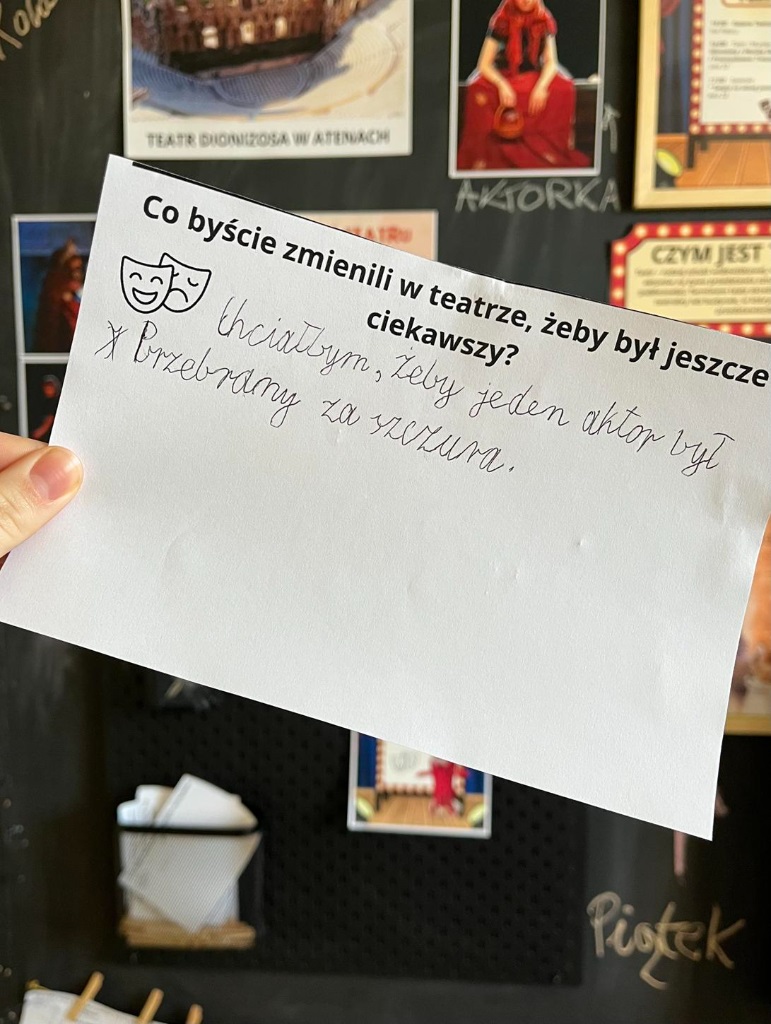 TEATR DIONIZOSA W ATENACH
AKTORKA
CZYM JEST
Co byście zmienili w teatrze, żeby był jeszcze
ciekawszy?
Chciałbym, żeby jeden aktor był
Przebramy za szczura.
Piątek